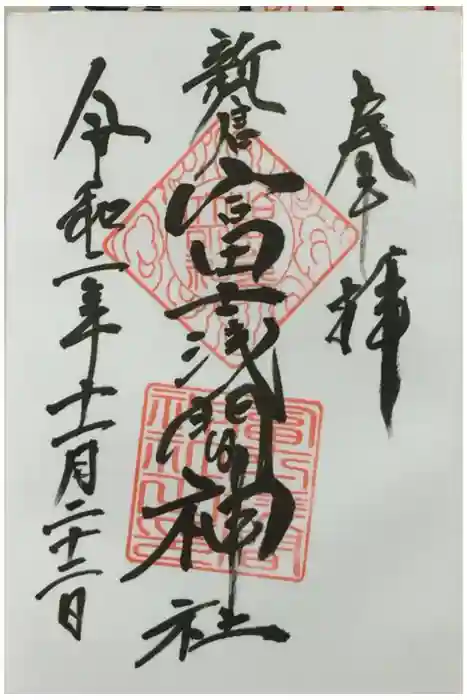 奉拝
新倉富士浅間神社
令和一年十一月二十二日